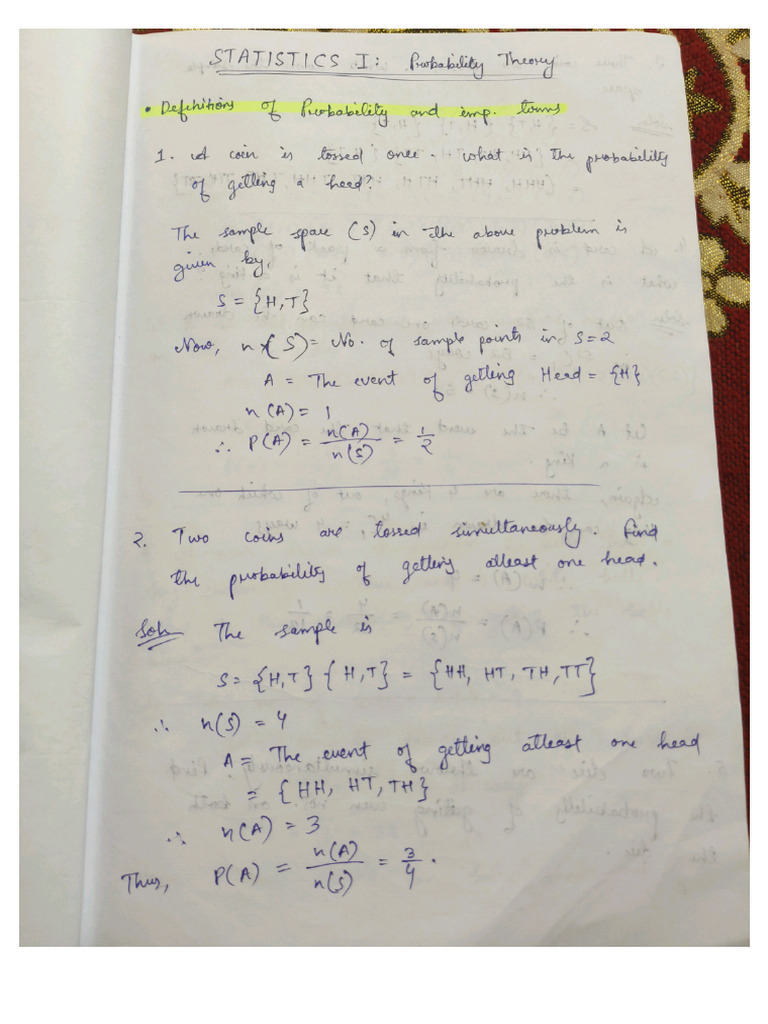 STATISTICS I: Probability Theory
• Definitions of Probability and imp. terms
1. A coin is tossed once. What is the probability
of getting a head?
The sample space (S) in the above problem is
given by,
S = {H,T}
Now, n(S) = No. of sample points in S = 2
A = The event of getting Head = {H}
n(A) = 1
∴ P(A) = n(A)/n(S) = 1/2
2. Two coins are tossed simultaneously. Find
the probability of getting atleast one head.
Soln The sample is
S = {H,T} {H,T} = {HH, HT, TH, TT}
∴ n(S) = 4
A = The event of getting atleast one head
= {HH, HT, TH}
∴ n(A) = 3
Thus, P(A) = n(A)/n(S) = 3/4.